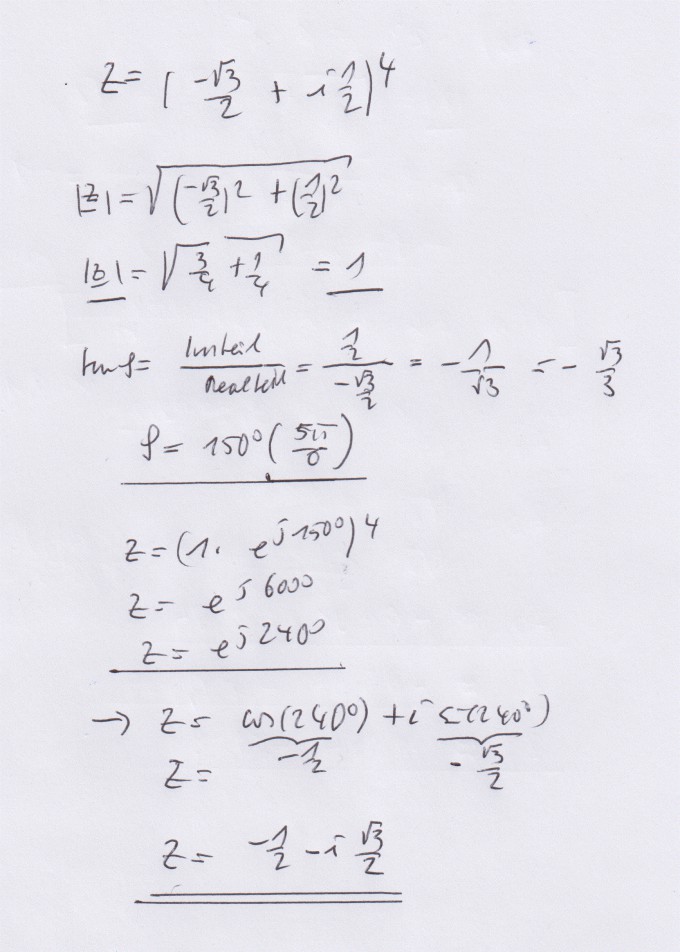 z = (-√3/2 + i 1/2)^4
|z| = √((-√3/2)^2 + (1/2)^2)
|z| = √(3/4 + 1/4) = 1
tan φ = Imteil/Realteil = (1/2)/(-√3/2) = -1/√3 = -√3/3
φ = 150° (5π/6)
z = (1. e^{j150°})^4
z = e^{j600°}
z = e^{j240°}
→ z = cos(240°) + i sin(240°)
-1/2 -√3/2
z =
z = -1/2 - i √3/2